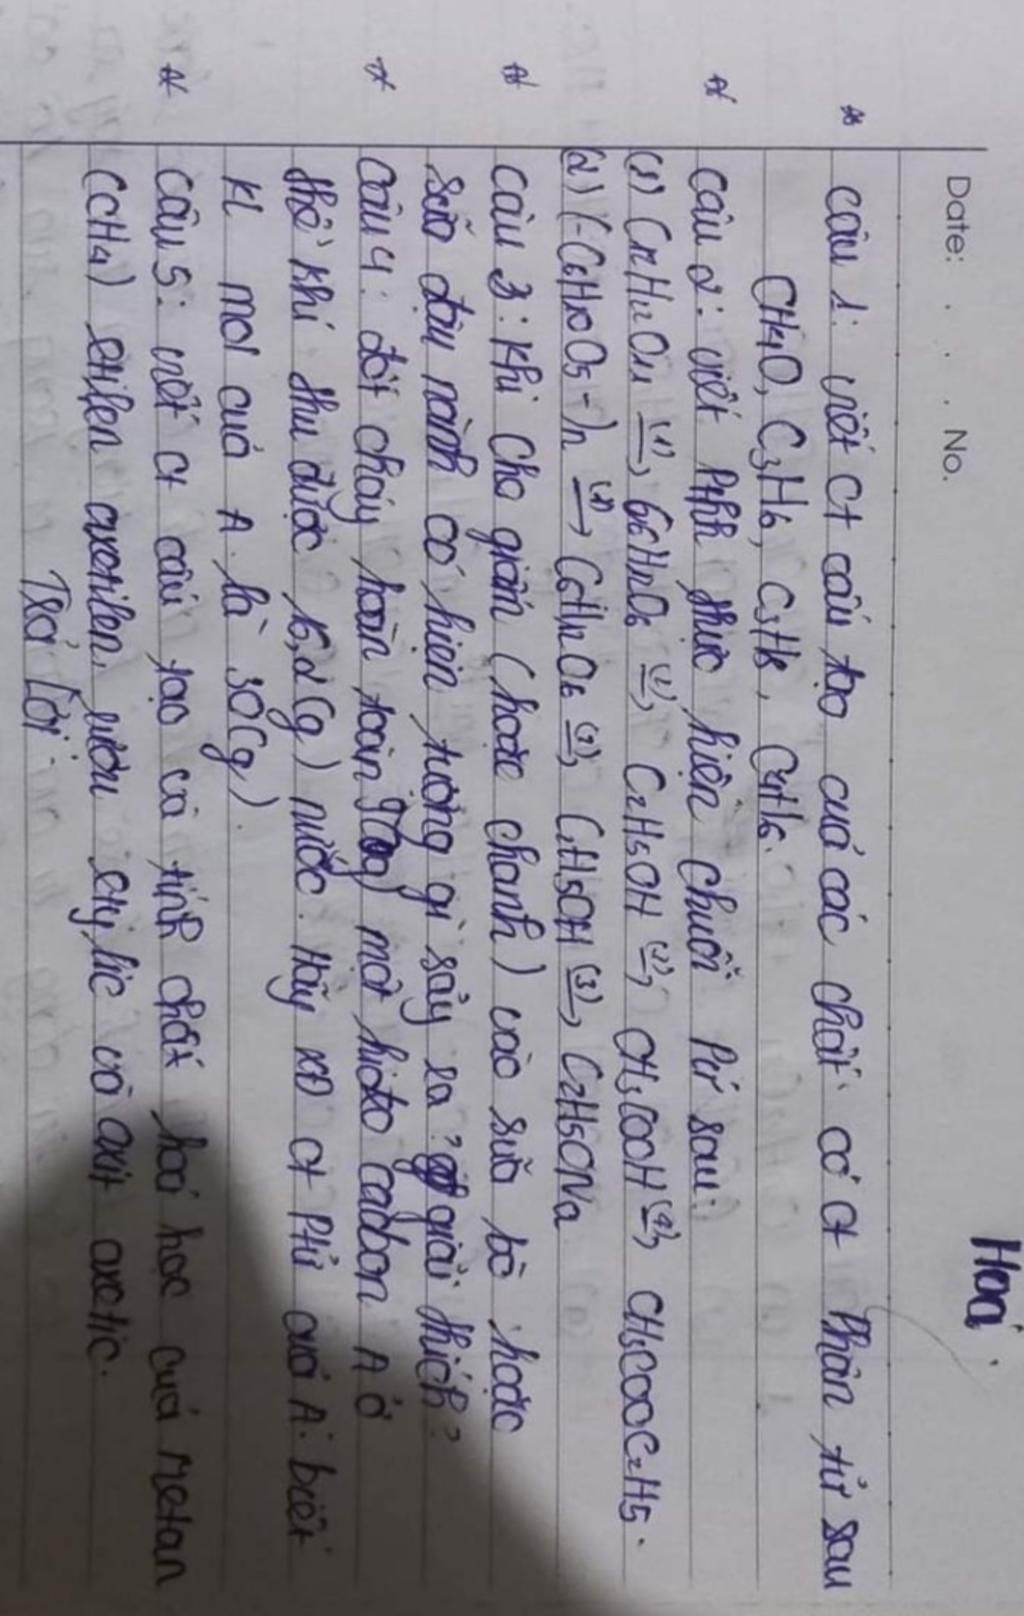 Hoá.
Date: . . . No.
câu 1: viết ct cấu tạo cuả các chất có ct phân tử sau
CH4O, C3H6, C3H8, C4H6.
câu 2: viết Pthh thực hiện chuỗi Pứ sau:
(1) C12H22O11 (1)→ C6H12O6 (2)→ C2H5OH (3)→ CH3COOH (4)→ CH3COOC2H5.
(2) (-C6H10O5-)n (1)→ C6H12O6 (2)→ C2H5OH (3)→ C2H5ONa
câu 3: Khi cho giấm (hoặc chanh) vào sữa bò hoặc
sữa đậu nành có hiện tượng gì sảy ra? giải thích?
câu 4: đốt cháy hoàn toàn 9(g) một hiđro cacbon A ở
thể khí thu được 16,2(g) nước. Hãy XĐ ct Ptử cuả A. biết
kl mol cuả A là 30(g).
câu 5: viết ct cấu tạo và tính chất hoá học cuả metan
(CH4) etilen axetilen, rượu etylic và axit axetic.
Trả Lời